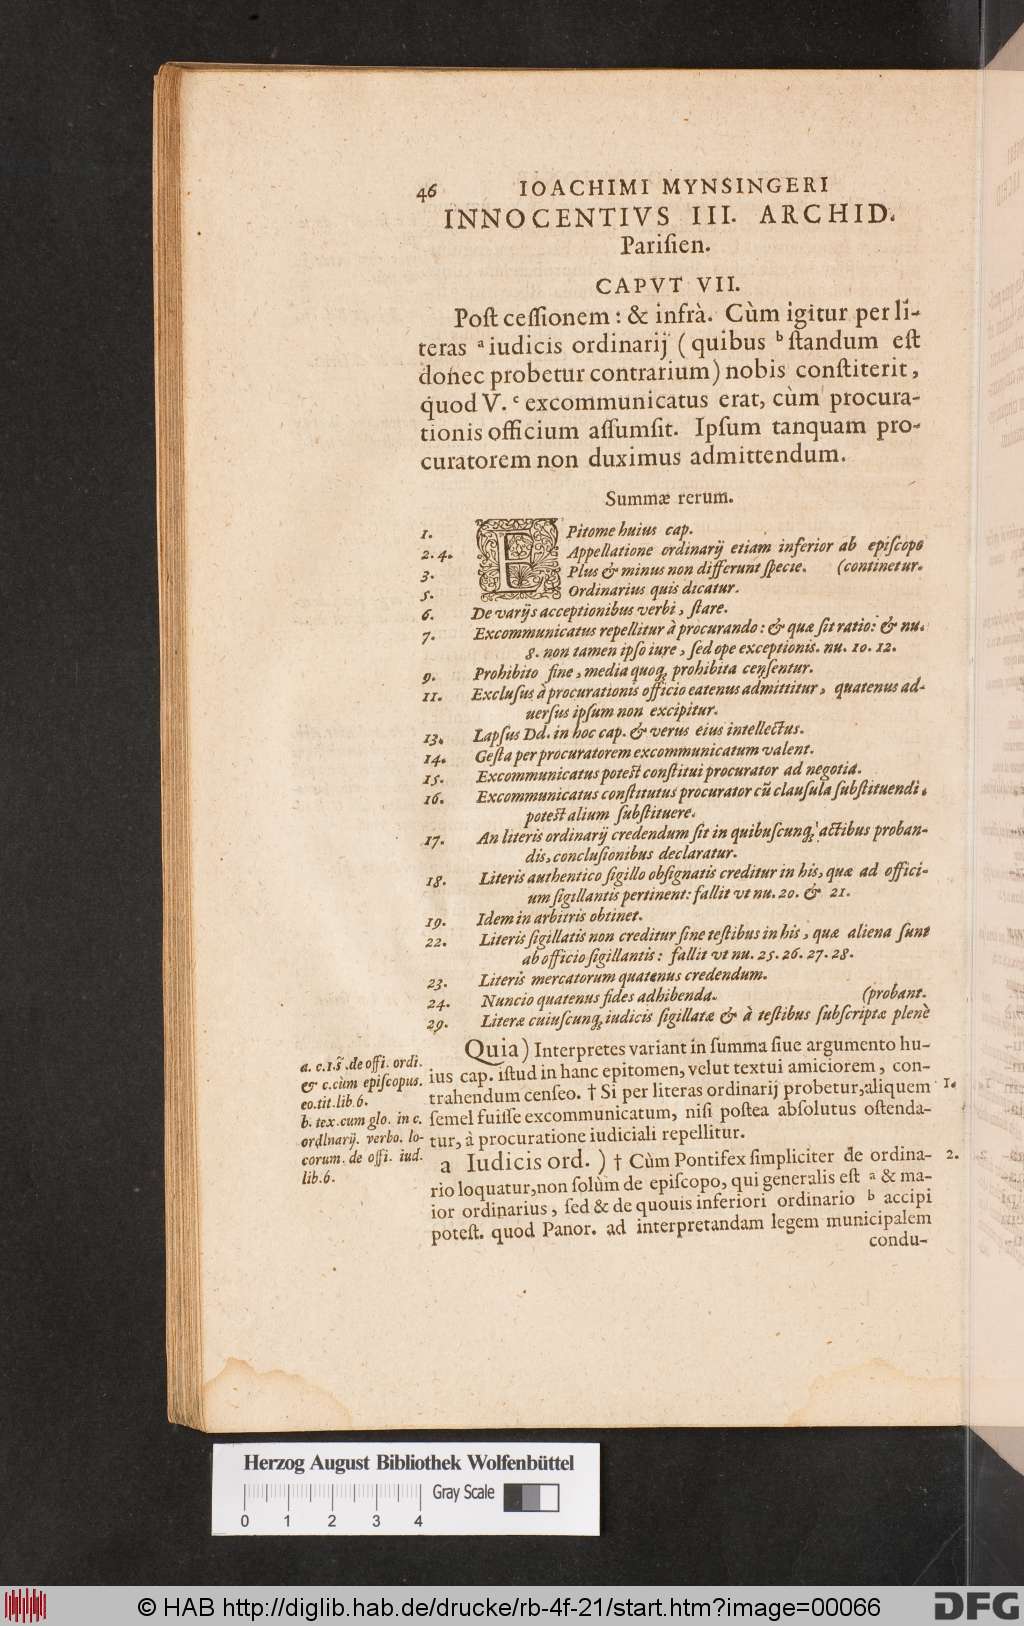 46 IOACHIMI MYNSINGERI
INNOCENTIVS III. ARCHID.
Pariſien.
CAPVT VII.
Poſt ceſſionem: & infrà. Cùm igitur per li-
teras ª iudicis ordinarij (quibus ᵇ ſtandum eſt
donec probetur contrarium) nobis conſtiterit,
quod V. ᶜ excommunicatus erat, cùm procura-
tionis officium aſſumſit. Ipſum tanquam pro-
curatorem non duximus admittendum.
Summæ rerum.
1. EPitome huius cap.
2. 4. Appellatione ordinarij etiam inferior ab epiſcopo
3. Plus & minus non differunt ſpecie. (continetur.
5. Ordinarius quis dicatur.
6. De varijs acceptionibus verbi, ſtare.
7. Excommunicatus repellitur à procurando: & quæ ſit ratio: & nu.
8. non tamen ipſo iure, ſed ope exceptionis. nu. 10. 12.
9. Prohibito fine, media quoq; prohibita cenſentur.
11. Excluſus à procurationis officio eatenus admittitur, quatenus ad-
uerſus ipſum non excipitur.
13. Lapſus Dd. in hoc cap. & verus eius intellectus.
14. Geſta per procuratorem excommunicatum valent.
15. Excommunicatus poteſt conſtitui procurator ad negotia.
16. Excommunicatus conſtitutus procurator cū clauſula ſubſtituendi,
poteſt alium ſubſtituere.
17. An literis ordinarij credendum ſit in quibuſcunq; actibus proban-
dis, concluſionibus declaratur.
18. Literis authentico ſigillo obſignatis creditur in his, quæ ad offici-
um ſigillantis pertinent: fallit vt nu. 20. & 21.
19. Idem in arbitris obtinet.
22. Literis ſigillatis non creditur ſine teſtibus in his, quæ aliena ſunt
ab officio ſigillantis: fallit vt nu. 25. 26. 27. 28.
23. Literis mercatorum quatenus credendum.
24. Nuncio quatenus fides adhibenda. (probant.
29. Literæ cuiuſcunq; iudicis ſigillatæ & à teſtibus ſubſcriptæ plenè
Quia) Interpretes variant in ſumma ſiue argumento hu-
ius cap. iſtud in hanc epitomen, velut textui amiciorem, con-
trahendum cenſeo. † Si per literas ordinarij probetur, aliquem 1.
ſemel fuiſſe excommunicatum, niſi poſtea abſolutus oſtenda-
tur, à procuratione iudiciali repellitur.
a Iudicis ord.) † Cùm Pontifex ſimpliciter de ordina- 2.
rio loquatur, non ſolùm de epiſcopo, qui generalis eſt ª & ma-
ior ordinarius, ſed & de quouis inferiori ordinario ᵇ accipi
poteſt. quod Panor. ad interpretandam legem municipalem
condu-
a. c.1.s̃.de offi. ordi.
& c.cùm epiſcopus.
eo.tit.lib.6.
b. tex.cum glo. in c.
ordinarij. verbo. lo-
corum. de offi. iud.
lib.6.
Herzog August Bibliothek Wolfenbüttel
Gray Scale
0 1 2 3 4
© HAB http://diglib.hab.de/drucke/rb-4f-21/start.htm?image=00066
DFG